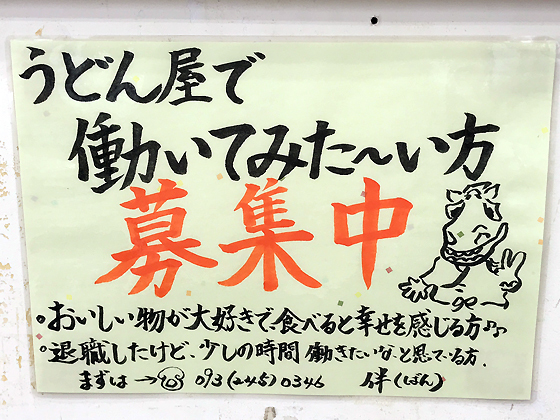 うどん屋で
働いてみた〜い方
募集中
。おいしい物が大好きで、食べると幸せを感じる方♪♪
。退職したけど、少しの時間働きたいな、と思ている方.
まずは→☎ 093(245)0346 伴(ばん)